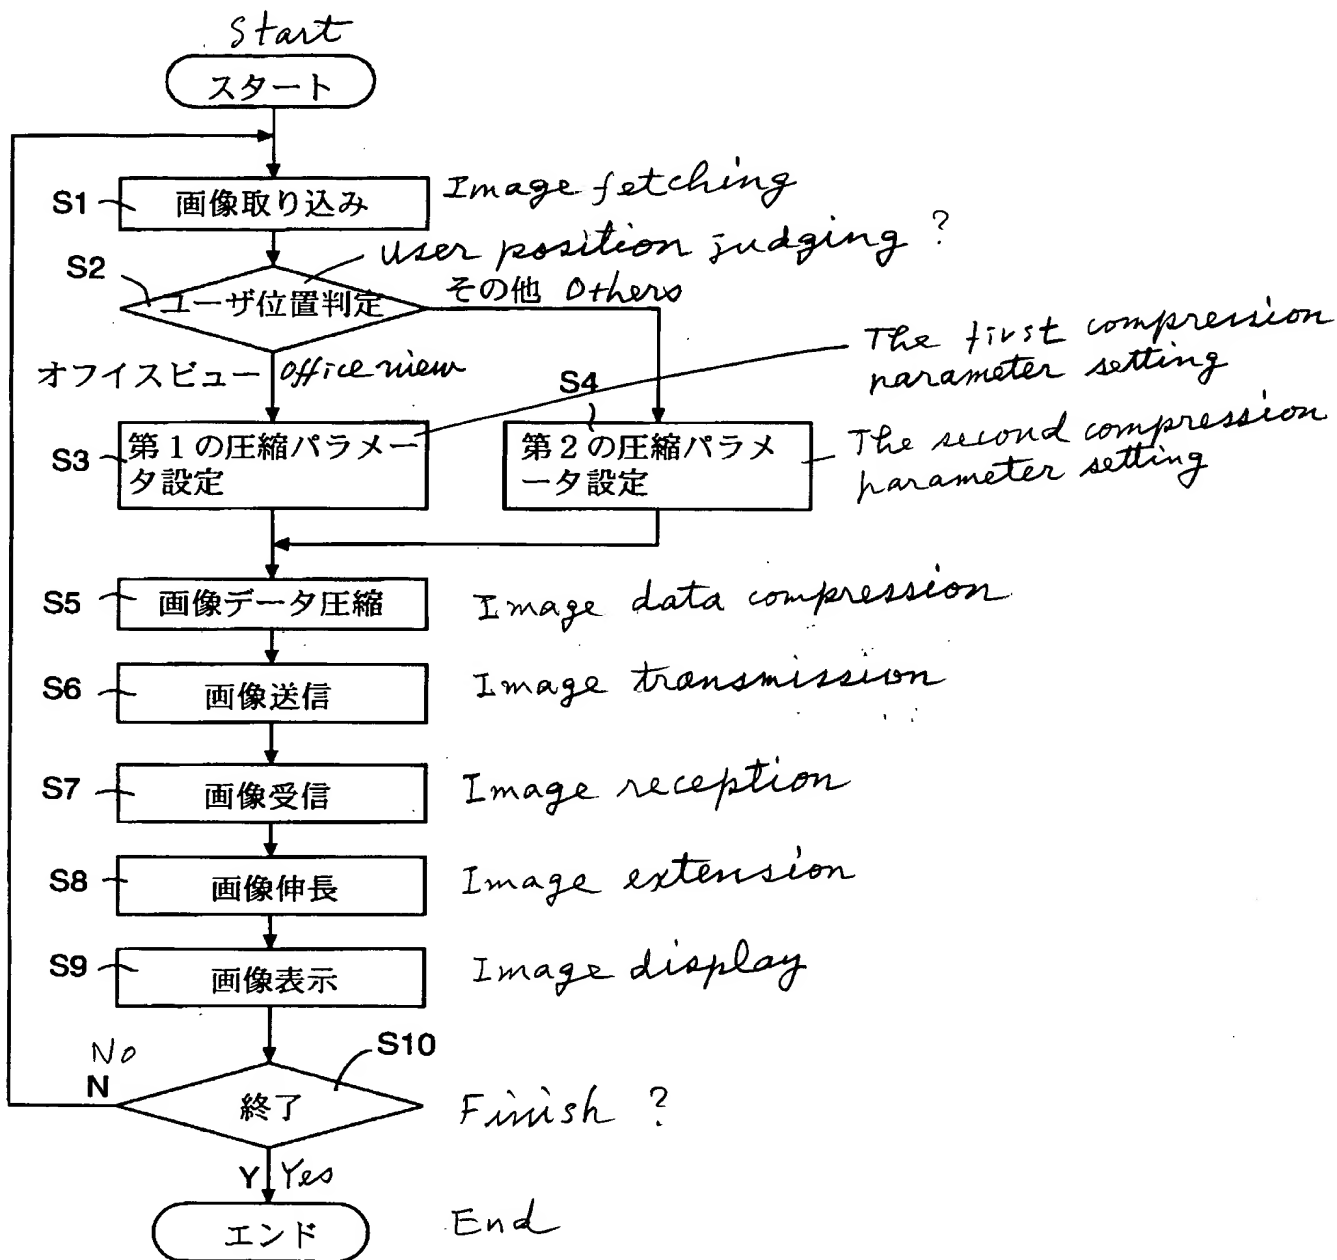 Start
スタート
S1
画像取り込み
Image fetching
S2
user position judging ?
ユーザ位置判定
その他 Others
オフイスビュー office view
S3
第1の圧縮パラメー
タ設定
The first compression
parameter setting
S4
第2の圧縮パラメ
ータ設定
The second compression
parameter setting
S5
画像データ圧縮
Image data compression
S6
画像送信
Image transmission
S7
画像受信
Image reception
S8
画像伸長
Image extension
S9
画像表示
Image display
S10
No
N
終了
Finish ?
Y Yes
エンド
End